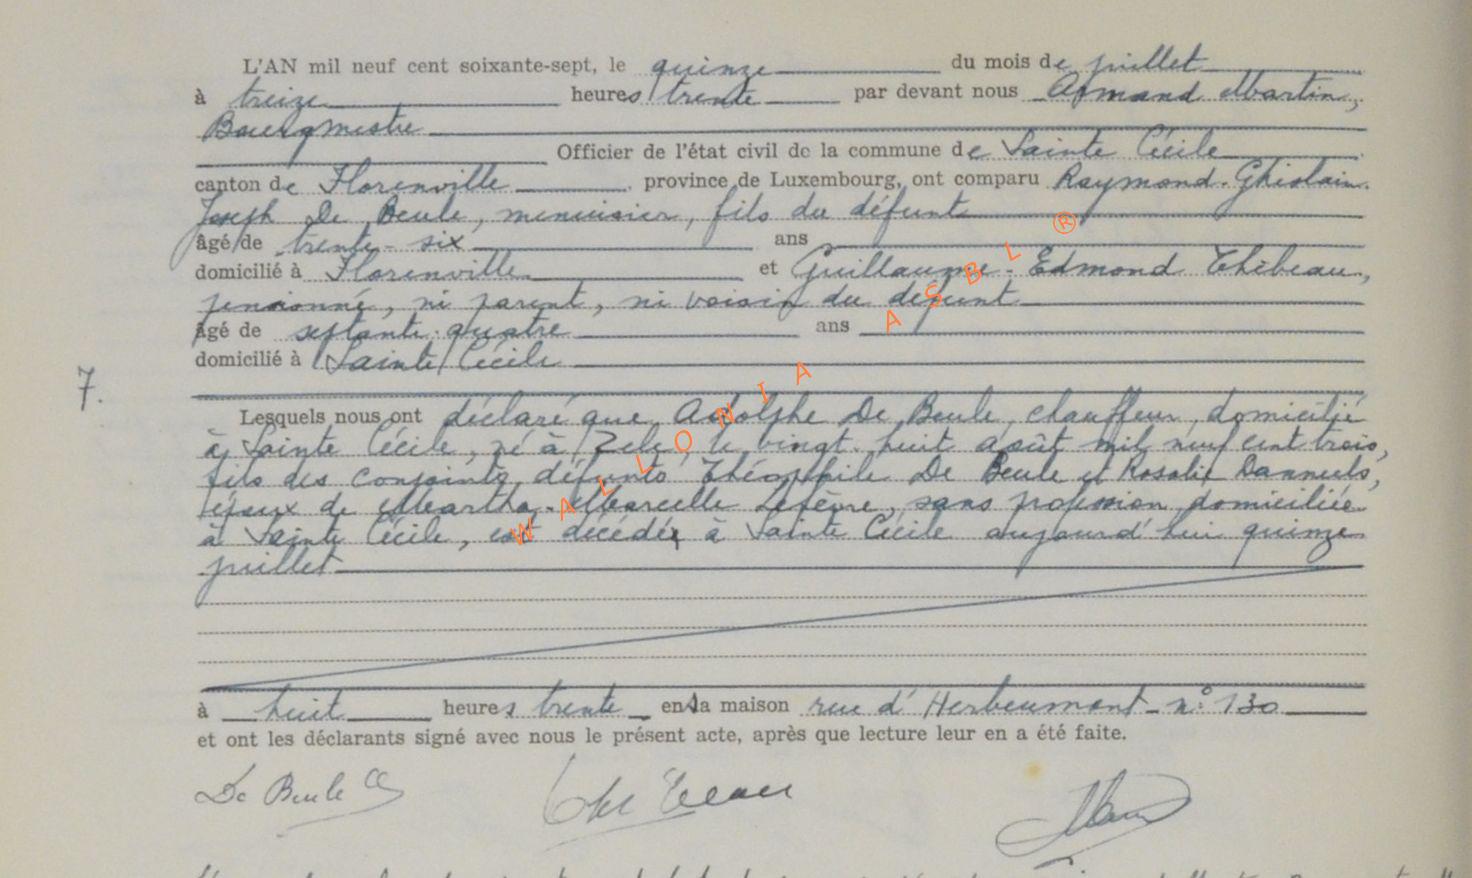 L'AN mil neuf cent soixante-sept, le quinze du mois de juillet
à treize heures trente par devant nous Armand Martin,
Bourgmestre
Officier de l'état civil de la commune de Sainte Cécile
canton de Florenville, province de Luxembourg, ont comparu Raymond-Ghislain-
Joseph De Beule, menuisier, fils du défunt
âgé de trente-six ans
domicilié à Florenville et Guillaume-Edmond Thèbeau,
pensionné, ni parent, ni voisin du défunt
âgé de septante-quatre ans
domicilié à Sainte Cécile
7.
Lesquels nous ont déclaré que Adolphe De Beule, chauffeur, domicilié
à Sainte Cécile, né à Zele, le vingt-huit août mil neuf cent trois,
fils des conjoints défunts Théophile De Beule et Rosalie Danneels,
époux de Martha-Marcelle Lefèvre, sans profession domiciliée
à Sainte Cécile, est décédé à Sainte Cécile aujourd'hui quinze
juillet
à huit heures trente en sa maison rue d'Herbeumont n° 130
et ont les déclarants signé avec nous le présent acte, après que lecture leur en a été faite.
De Beule
WALLONIA ASBL ®